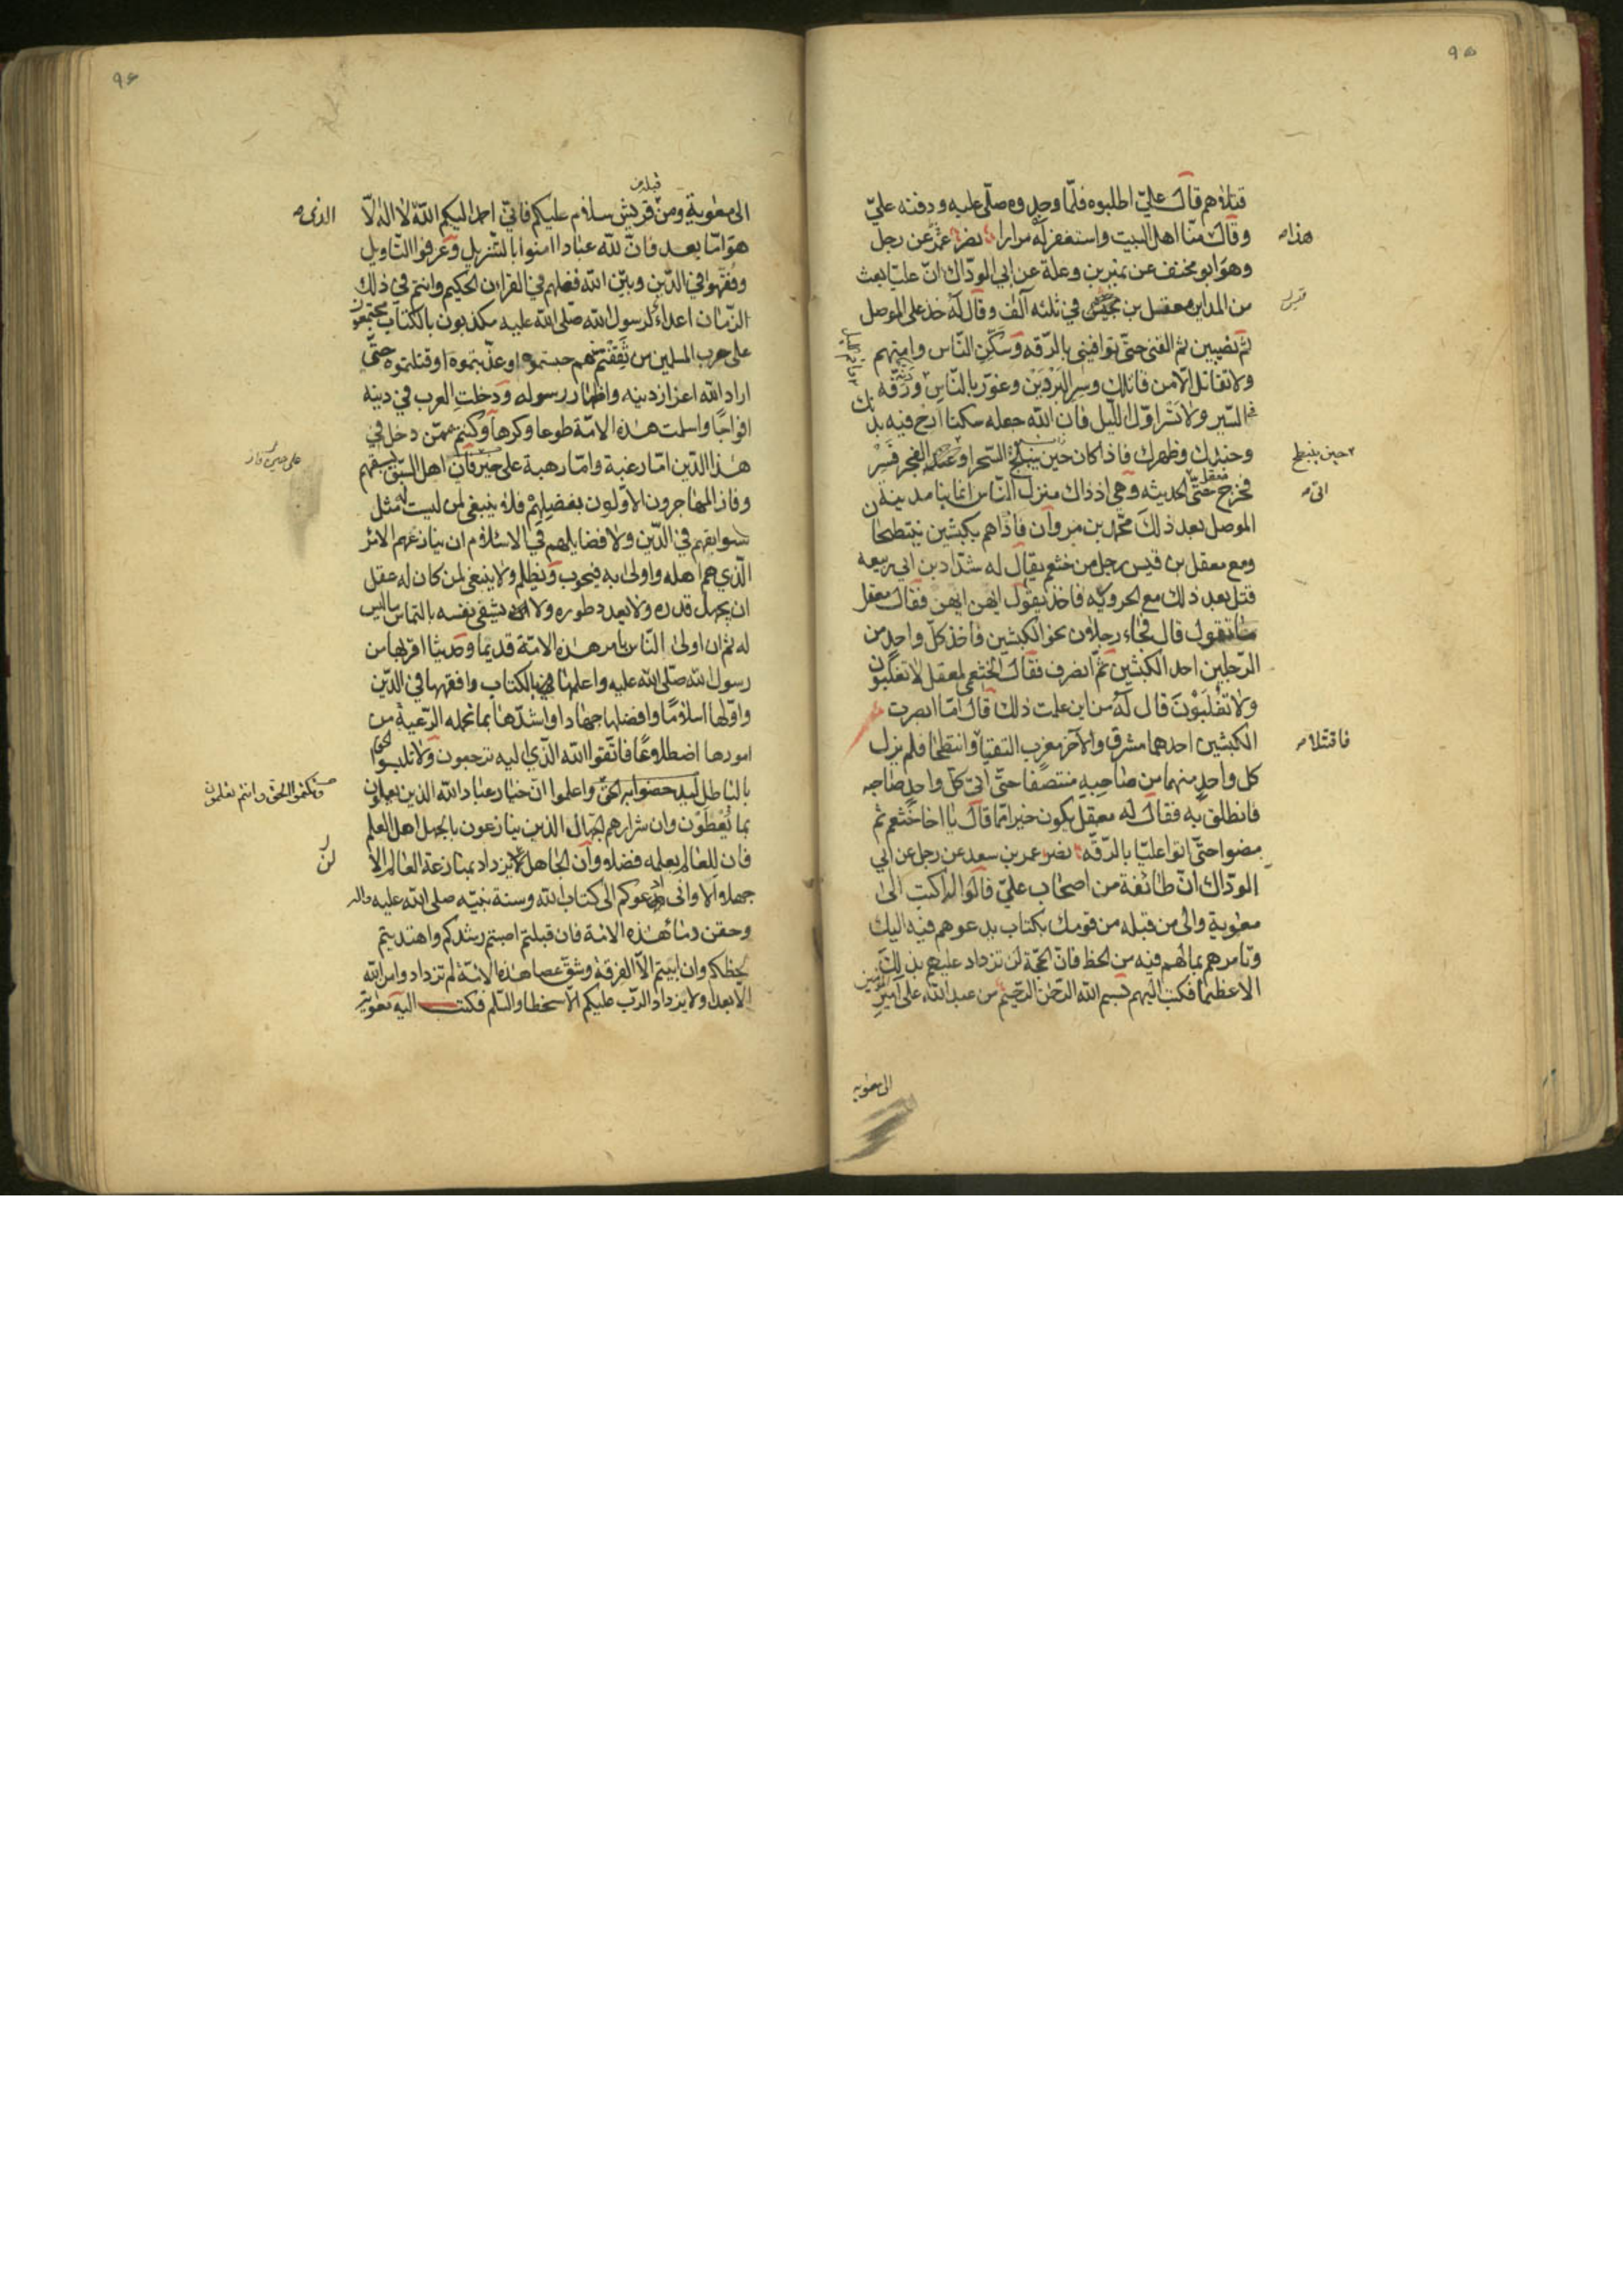 ٩٥
قتلاهم قال علي اطلبوه فلما وجدوه صلى عليه ودفنه علي
وقال منا اهل البيت واستغفر له مرارا نصر عمر عن رجل
هذا
وهو ابو مخنف عن نمير بن وعلة عن ابي الودّاك انّ عليّا بعث
من المداين معقل بن قيس في ثلثه آلف وقال له خذ على الموصل
قيس
ثم نصيبين ثم القنى حتى توافيني بالرقه وسكّن الناس وامنهم
ولا تقاتل الا من قاتلك وسر البردين وغوّر بالناس ورفّه
في السير ولا تسر اول الليل فان الله جعله سكنا ارح فيه بدنك
وجندك وظهرك فاذا كان حين ينبلج السحر او الفجر فسر
حين ينبطح
فخرج معقل حتى الحديثه وهي اذ ذاك منزل الناس انما بنا مدينة
اتى
الموصل بعد ذلك محمد بن مروان فاذا هم بكبشين ينتطحان
ومع معقل بن قيس رجل من خثعم يقال له شداد بن ابي ربيعه
قتل بعد ذلك مع الحروريّه فاخذ يقول ايهن ايهن فقال معقل
ما تقول قال فجاء رجلان نحو الكبشين فاخذ كلّ واحد من
الرجلين احد الكبشين ثمّ انصرف فقال الخثعمي لمعقل لا تغلبون
ولا تغلبون قال له من اين علمت ذلك قال اما ابصرت
الكبشين احدهما مشرق والآخر مغرب التقيا وانتطحا فلم يزل
فاقتتلا
كل واحد منهما من صاحبه منتصفا حتّى اتى كلّ واحد صاحبه
فانطلق به فقال له معقل يكون خيرا مما قال يا اخا خثعم ثم
مضوا حتى اتوا عليّا بالرقه نصر عمر بن سعد عن رجل عن ابي
الودّاك انّ طائفة من اصحاب عليّ قالوا له اكتب الى
معوية والى من قبله من قومك بكتاب يدعوهم فيه اليك
وتامرهم بما لهم فيه من الحظ فانّ الحجّة لن تزداد عليهم بذلك
الا عظما فكتب اليهم بسم الله الرحمن الرحيم من عبد الله علي امير المؤمنين
الى معويه
٩٦
الى معوية ومن قبله من قريش سلام عليكم فاني احمد اليكم الله لا اله الّا
الذي
هو امّا بعد فانّ لله عبادا امنوا بالتنزيل وعرفوا التاويل
وفقهوا في الدّين وبيّن الله فضلهم في القرآن الحكيم وانتم في ذلك
الزمان اعداء لرسول الله صلى الله عليه مكذبون بالكتاب مجتمعون
على حرب المسلمين من ثقفتم منهم حبستموه او عذبتموه او قتلتموه حتى
اراد الله اعزاز دينه واظهار رسوله ودخلت العرب في دينه
افواجًا واسلمت هذه الامّة طوعا وكرها وكنتم ممن دخل في
هذا الدّين امّا رغبة وامّا رهبة على حين فاز اهل السبق بسبقهم
على حين فاز
وفاز المهاجرون الاولون بفضلهم فلا ينبغي لمن ليست له مثل
سوابقهم في الدّين ولا فضايلهم في الاسلام ان ينازعهم الامر
الذي هم اهله واولى به فيحوب ويظلم ولا ينبغي لمن كان له عقل
ان يجهل قدره ولا يعدو طوره ولا ان يشقي نفسه بالتماس ما ليس
له ثم ان اولى الناس بامر هذه الامّة قديما وحديثا اقربها من
رسول الله صلى الله عليه واعلمها بالكتاب وافقهها في الدّين
واوّلها اسلامًا وافضلها جهادا واشدّها بما تحمله الرعيّة من
امورها اضطلاعًا فاتّقوا الله الّذي اليه ترجعون ولا تلبسوا الحق
بالباطل ليدحضوا به الحق واعلموا انّ خيار عباد الله الذين يعملون
وتكتموا الحق وانتم تعلمون
بما يعلمون وان شرارهم الجهال الذين ينازعون بالجهل اهل العلم
فان للعالم بعلمه فضلا وان الجاهل لا يزداد بمنازعة العالم الّا
لن
جهلا الا واني ادعوكم الى كتاب الله وسنة نبيّه صلى الله عليه واله
وحقن دماء هذه الامّة فان قبلتم اصبتم رشدكم واهتديتم
لحظكم وان ابيتم الّا الفرقة وشقّ عصا هذه الامّة لم تزدادوا من الله
الّا بعدا ولا يزداد الرّب عليكم الّا سخطا والسّلم فكتب اليه معوية